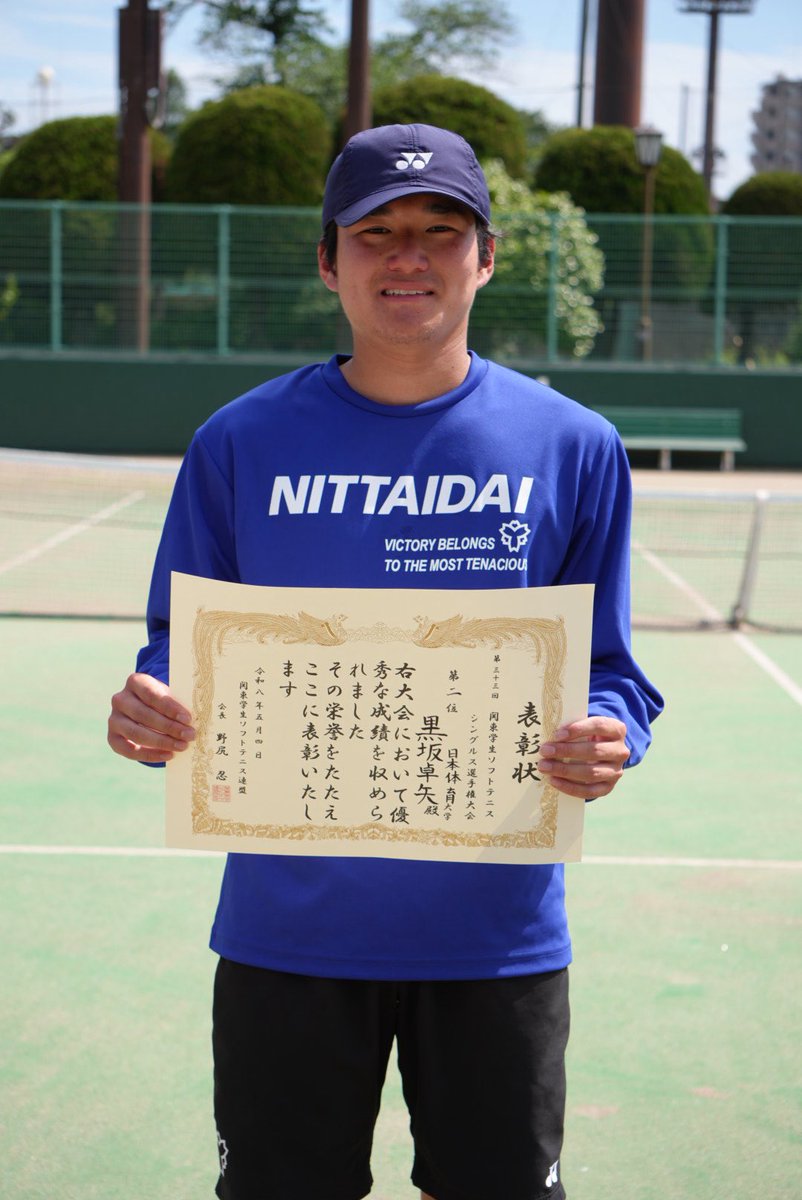 NITTAIDAI
VICTORY BELONGS
TO THE MOST TENACIOUS
表彰状
第三十三回 関東学生ソフトテニス
シングルス選手権大会
第二位 日本体育大学
黒坂卓矢殿
右大会において優
秀な成績を収めら
れました
その栄誉をたたえ
ここに表彰いたし
ます
令和八年五月四日
関東学生ソフトテニス連盟
会長 野尻 忍